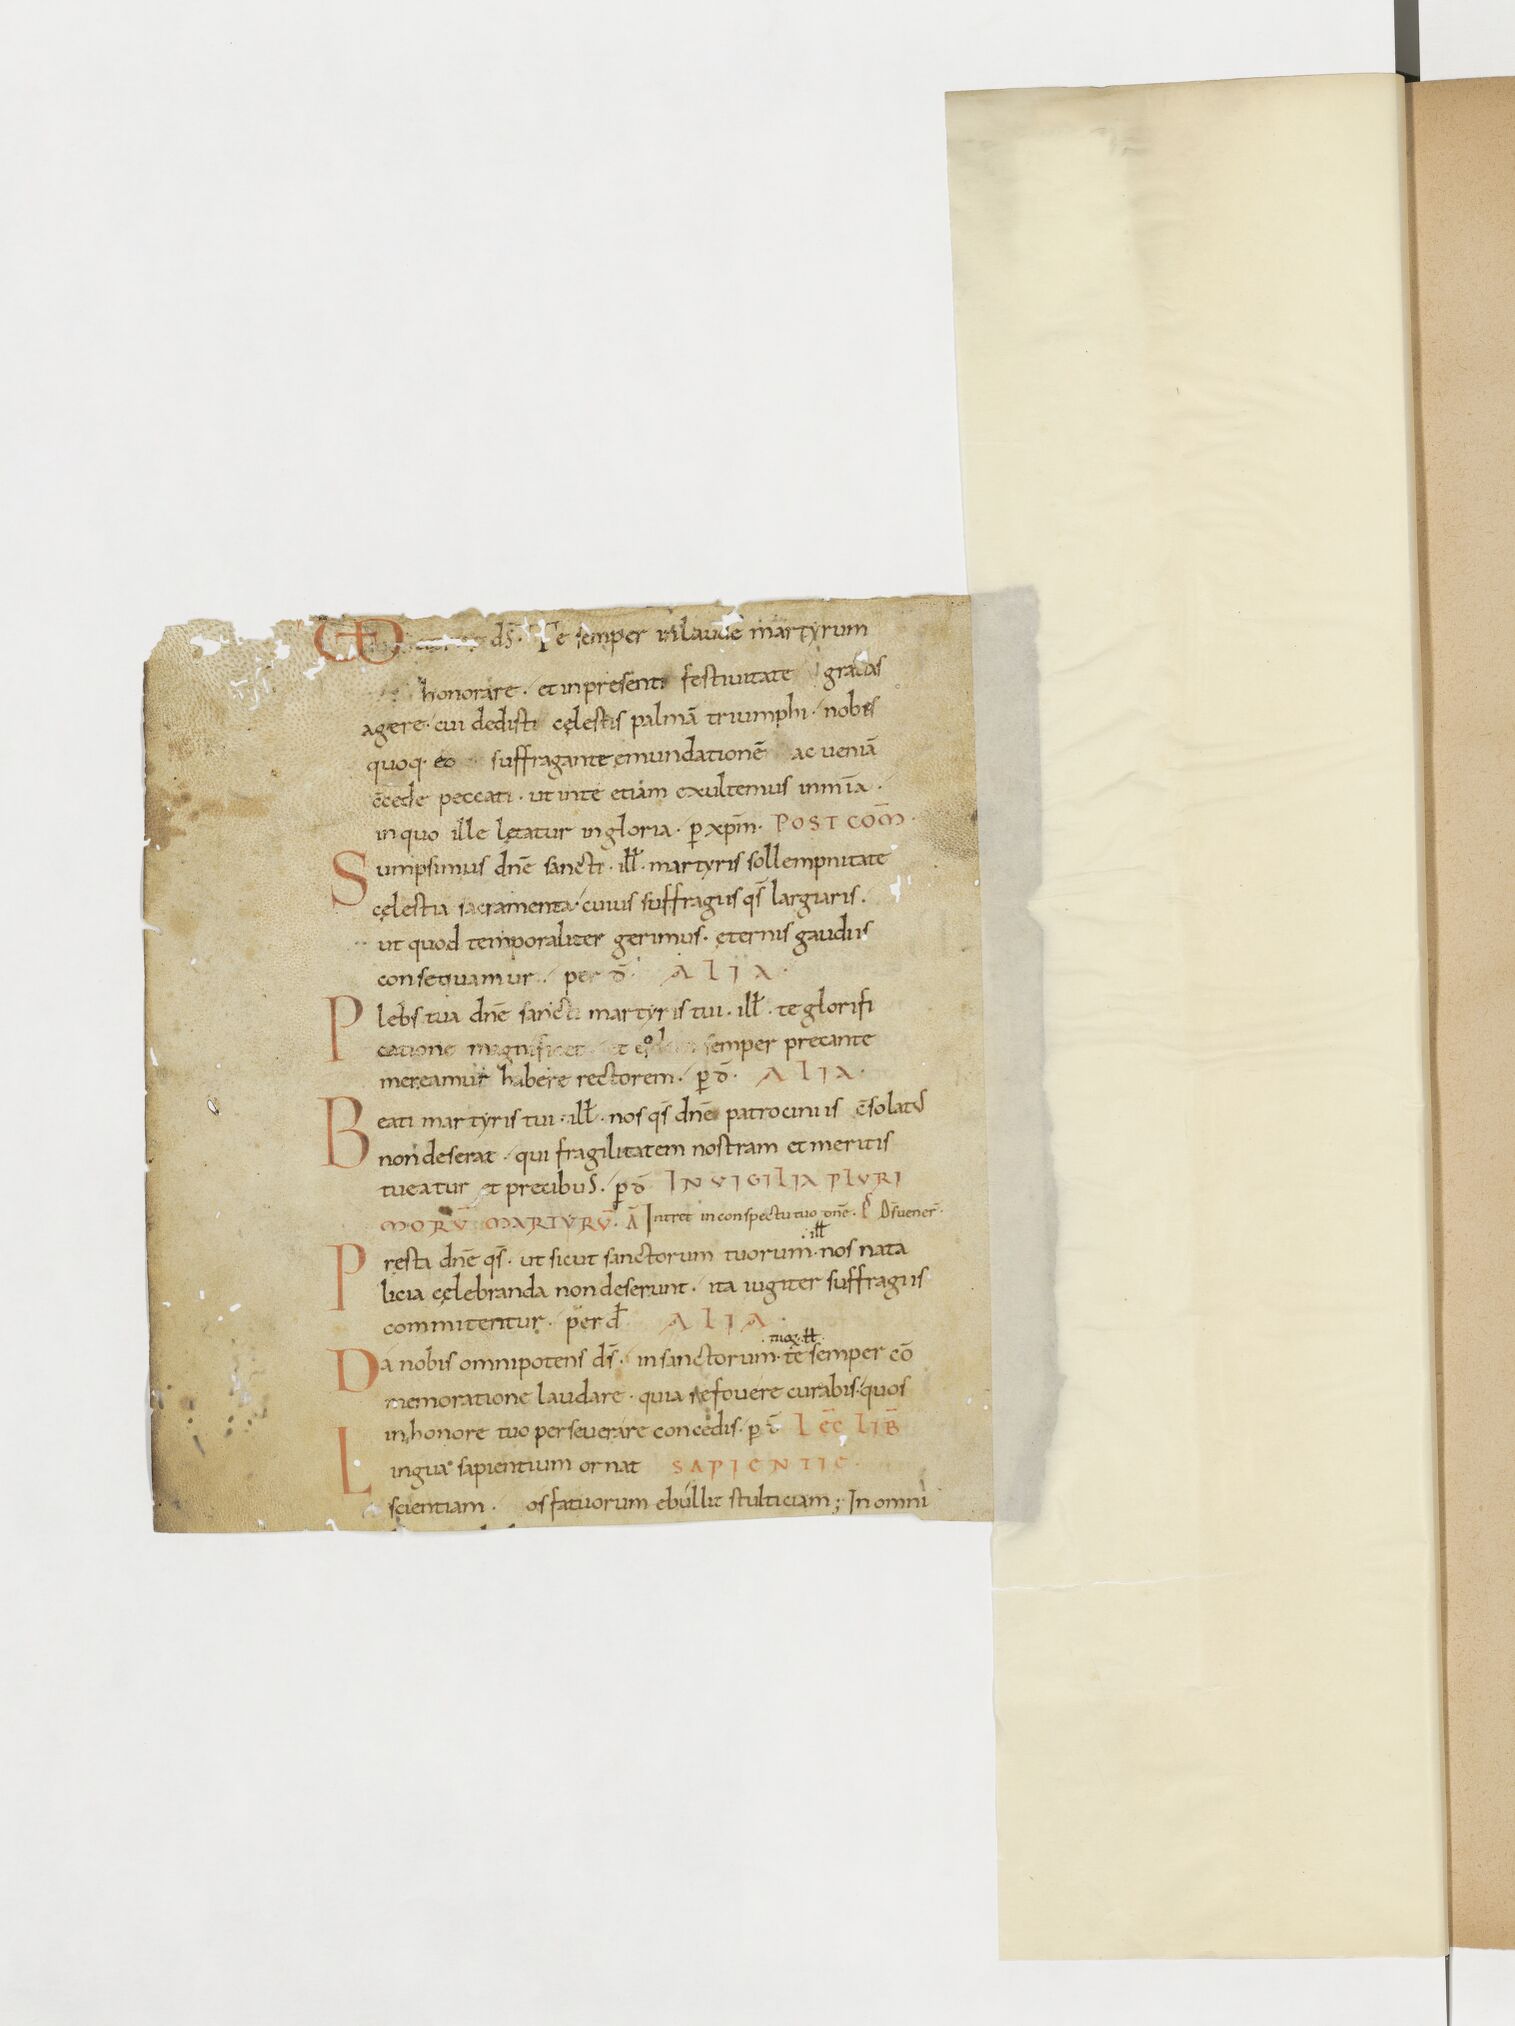 ds̄. Te semper in laude martyrum
honorare . et in presenti festiuitate gracias
agere . cui dedisti cęlestis palmā triumphi . nobis
quoq· eo suffragante emundationē ac ueniā
c̄cede peccati . ut in te etiam exultemus in mīa .
in quo ille lętatur in gloria . p̱ xp̄m . POST COM̄ .
Sumpsimus dn̄e sancti . ill̄ . martyris sollempnitate
cęlestia sacramenta . cuius suffragiis qs̄ largiaris .
ut quod temporaliter gerimus . ęternis gaudiis
consequamur . per d̄ . ALIA .
Plebs tua dn̄e sancti martyris tui . ill̄ . te glorifi
catione magnificet et semper precante
mereamur habere rectorem . p̱ d̄ . ALIA .
Beati martyris tui . ill̄ . nos qs̄ dn̄e patrociniis c̄solat
non deserat . qui fragilitatem nostram et meritis
tueatur et precibus . p̱ d̄ IN VIGILIA PLVRI
MORV̄ MARTYRV̄ . Ā Intret in conspectu tuo dn̄e . P̄ Ds̄ uener̄ .
Presta dn̄e qs̄ . ut sicut sanctorum tuorum . ill̄ . nos nata
licia cęlebranda non deserunt . ita iugiter suffragiis
commitentur . per d̄ ALIA .
Da nobis omnipotens ds̄ . in sanctorum . tuoꝝ . ill̄ . te semper cō
memoratione laudare . quia refouere curabis . quos
in honore tuo perseuerare concedis . p̱ d̄ LEC̄ LIB̄
Lingua sapientium ornat SAPIENTIE .
scientiam . os fatuorum ebullit stulticiam ; In omni